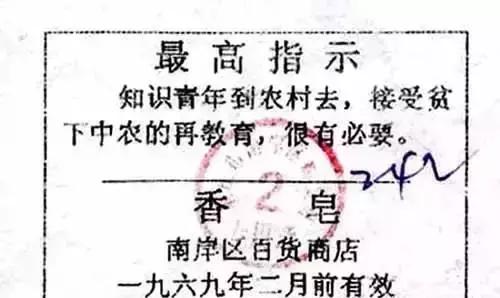 最高指示
知识青年到农村去，接受贫
下中农的再教育，很有必要。
2
242
香皂
南岸区百货商店
一九六九年二月前有效